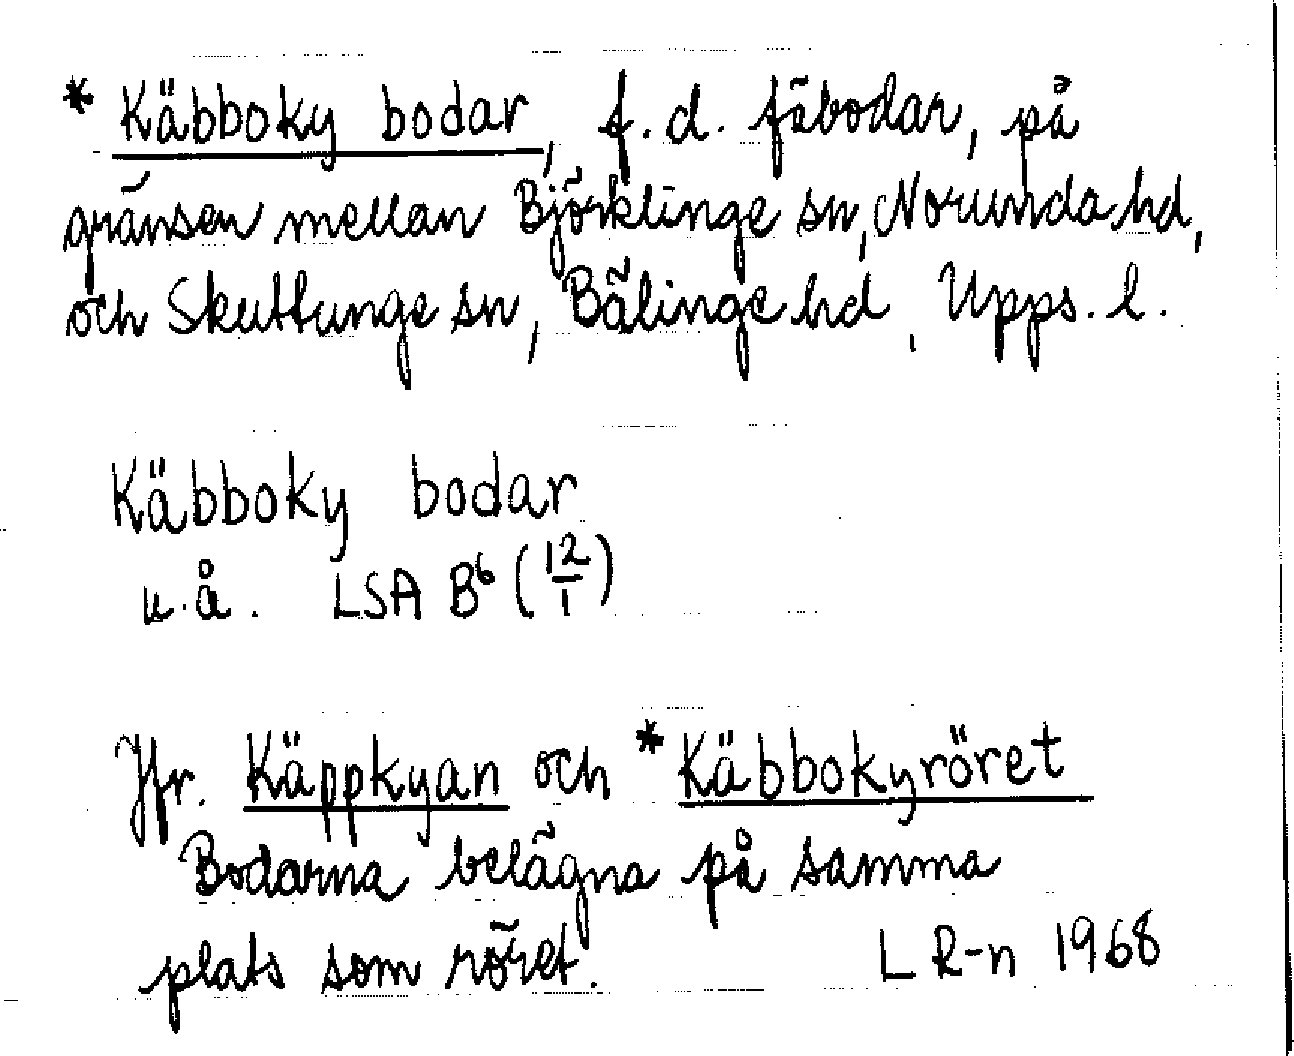 * Käbboky bodar, f.d. fäbodar, på
gränsen mellan Björklinge sn, Norunda hd,
och Skuttunge sn, Bälinge hd, Upps. l.
Käbboky bodar
u.å. LSA B⁶ (12/1)
Jfr. Käppkyan och * Käbbokyröret
Bodarna belägna på samma
plats som röret. L R-n 1968